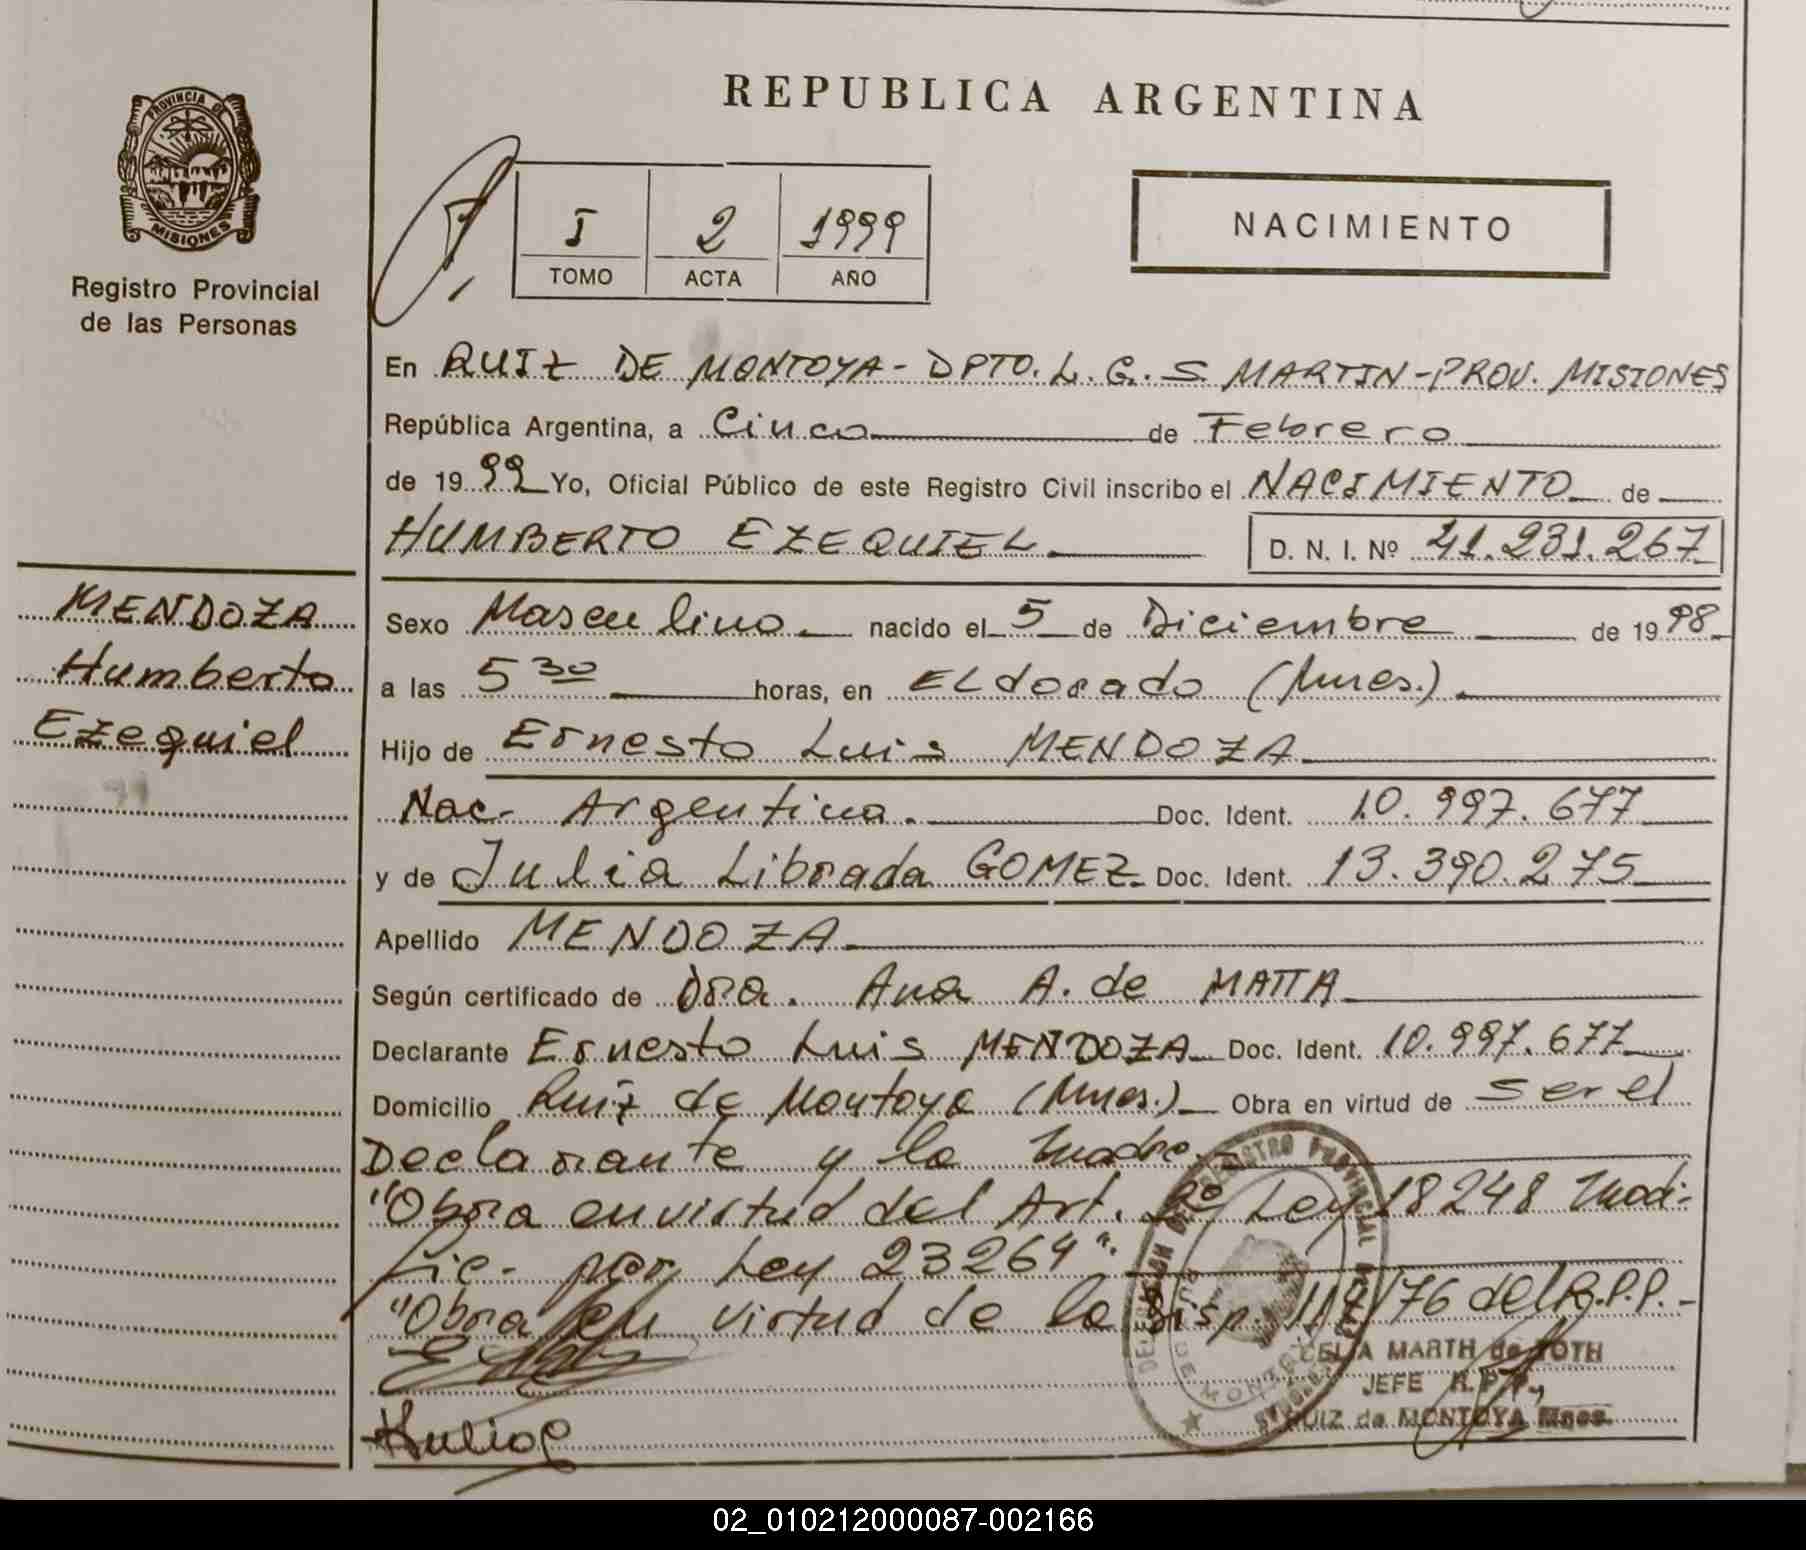 REPUBLICA ARGENTINA
PROVINCIA DE
MISIONES
Registro Provincial
de las Personas
I 2 1999
TOMO ACTA AÑO
NACIMIENTO
En RUIZ DE MONTOYA - DPTO. L. G. S. MARTIN - PROV. MISIONES
República Argentina, a Cinco de Febrero
de 1999 Yo, Oficial Público de este Registro Civil inscribo el NACIMIENTO de
HUMBERTO EZEQUIEL D. N. I. Nº 41.231.267
MENDOZA
Humberto
Ezequiel
Sexo Masculino nacido el 5 de Diciembre de 1998
a las 5 30 horas, en ELdorado (Mnes.)
Hijo de Ernesto Luis MENDOZA
Nac. Argentina. Doc. Ident. 10.997.677
y de Julia Librada GOMEZ Doc. Ident. 13.390.275
Apellido MENDOZA
Según certificado de Dra. Ana A. de MATTA
Declarante Ernesto Luis MENDOZA Doc. Ident. 10.997.677
Domicilio Ruiz de Montoya (Mnes.) Obra en virtud de ser el
Declarante y la madre.-
"Obra en virtud del Art. 2º Ley 18248 modi-
fic. por Ley 23264".
"Obra en virtud de la Disp. 117/76 del R.P.P.-
CELIA MARTH de TOTH
JEFE R.P.P.,
RUIZ de MONTOYA Mnes.
02_010212000087-002166